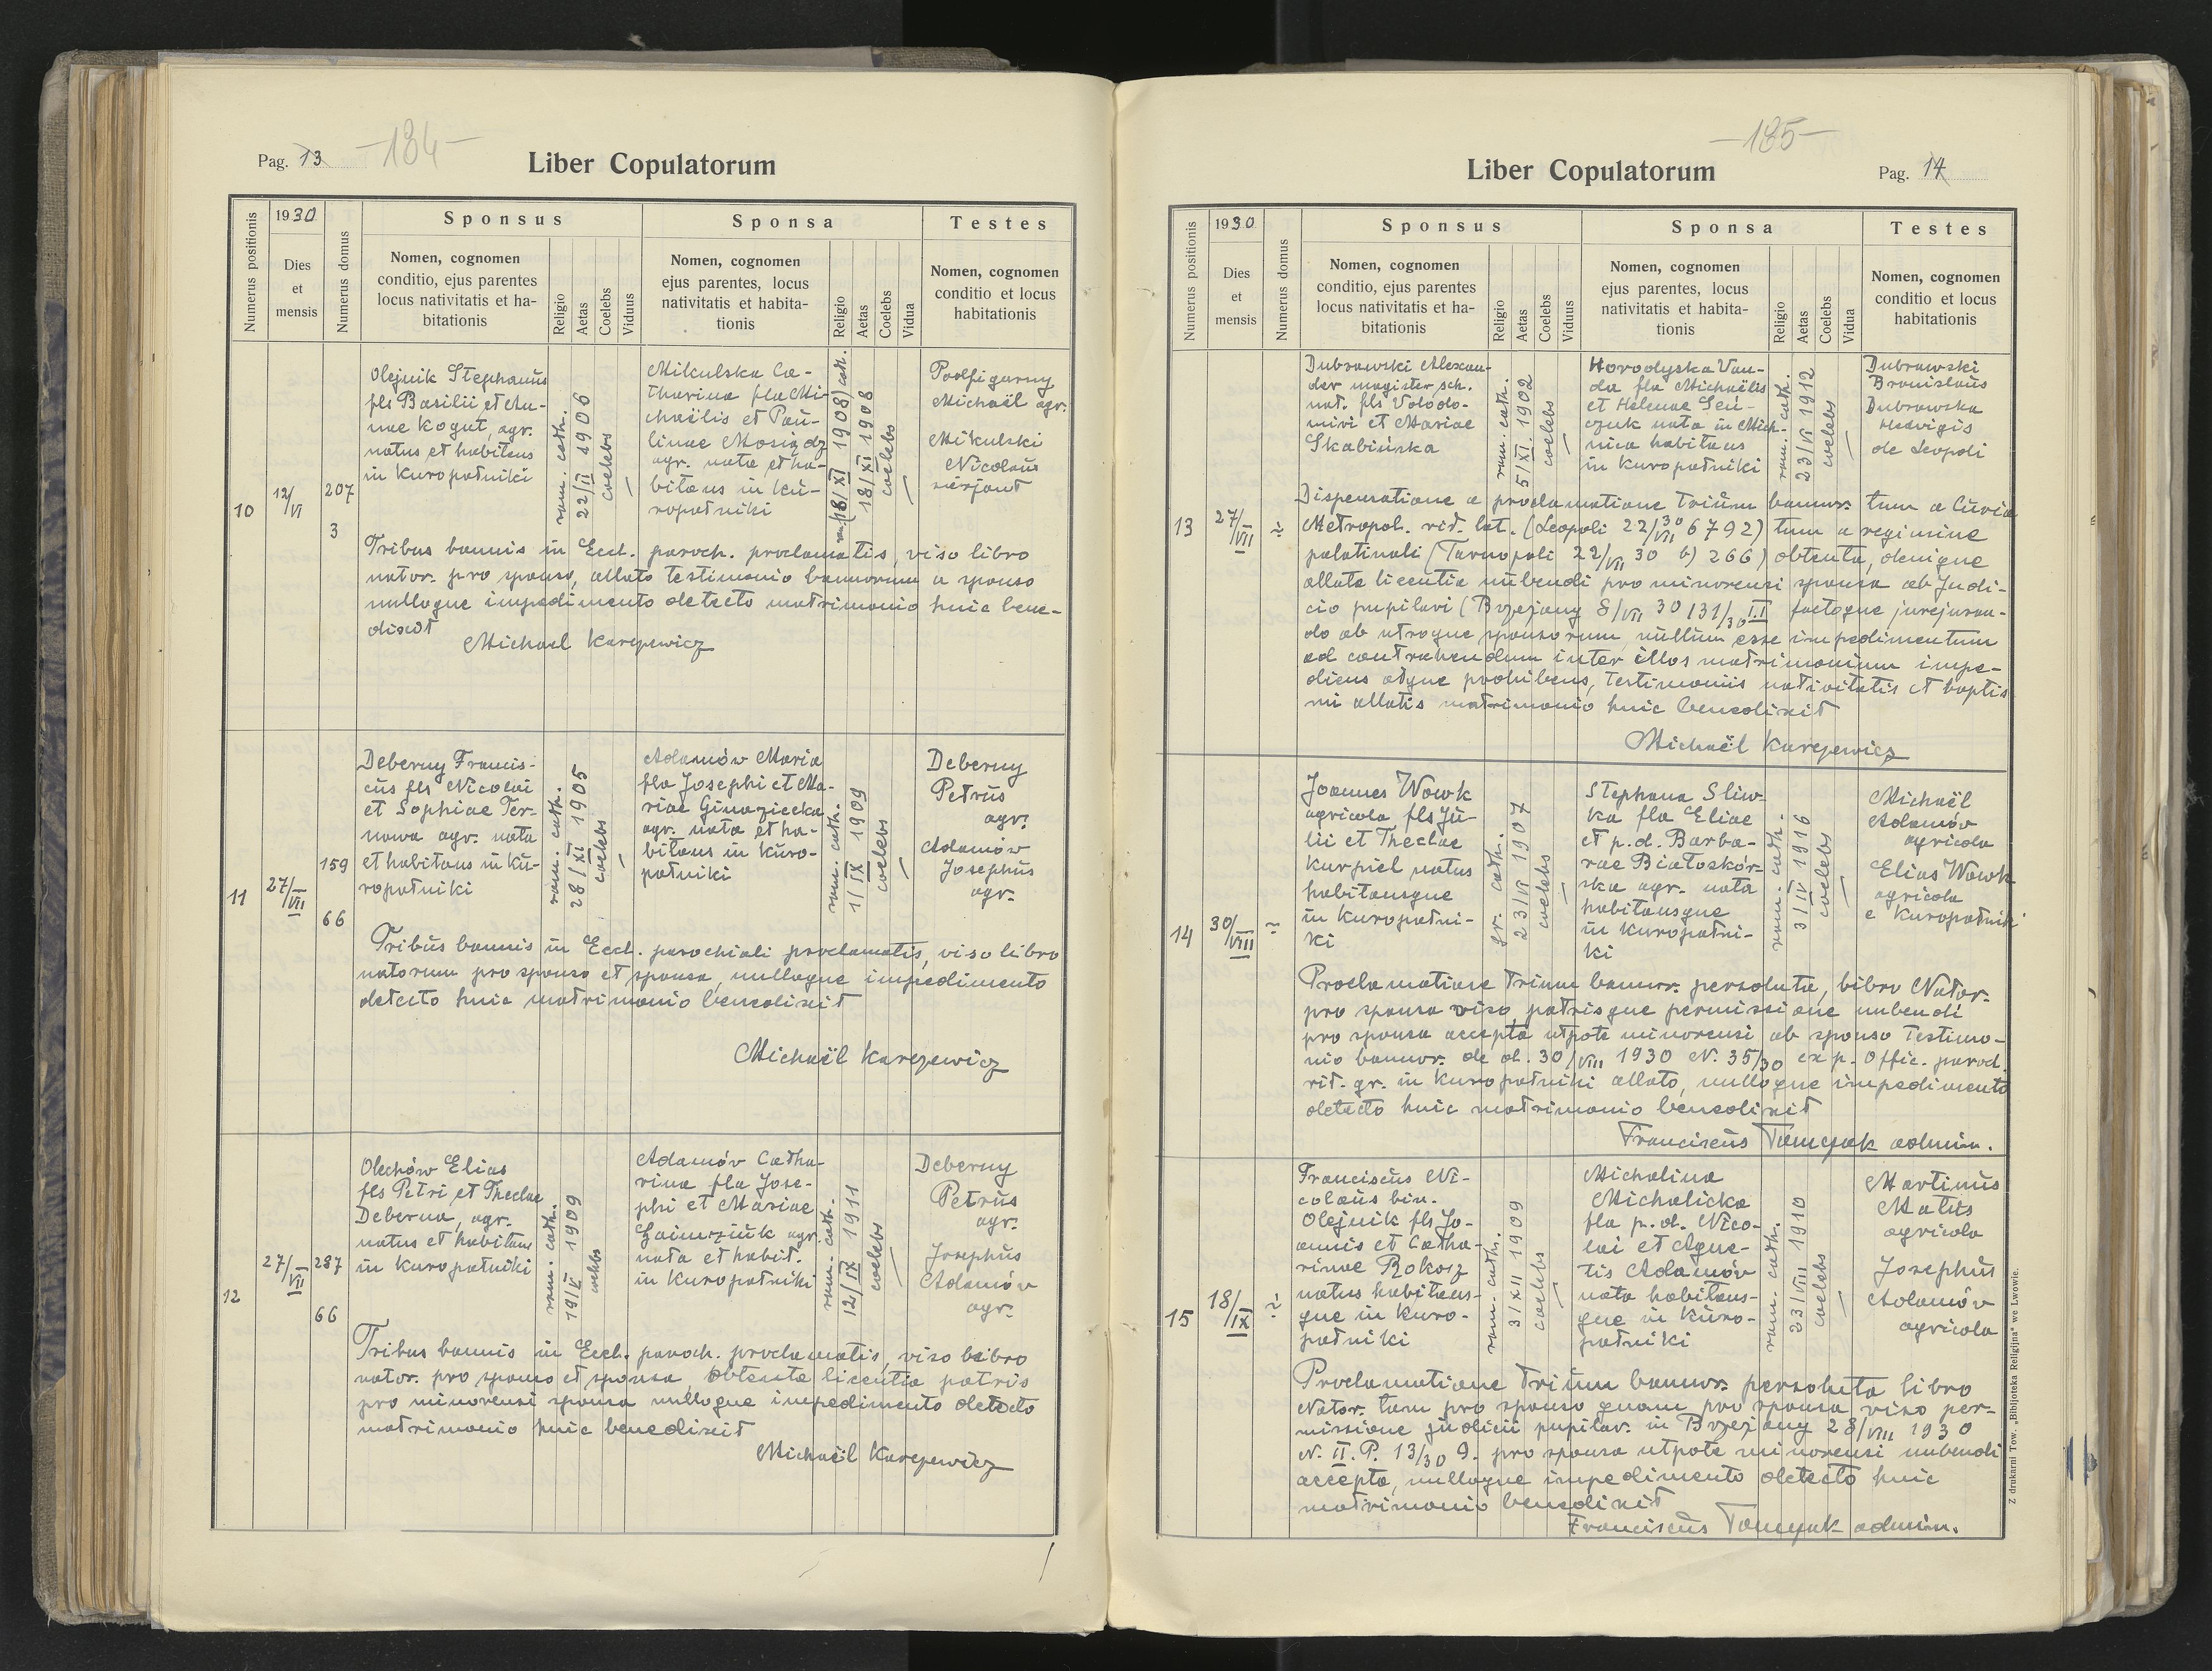 Pag. 13 -184-
Liber Copulatorum
Numerus positionis
1930
Dies
et
mensis
Numerus domus
Sponsus
Nomen, cognomen
conditio, ejus parentes
locus nativitatis et ha-
bitationis
Religio
Aetas
Coelebs
Viduus
Sponsa
Nomen, cognomen
ejus parentes, locus
nativitatis et habita-
tionis
Religio
Aetas
Coelebs
Vidua
Testes
Nomen, cognomen
conditio et locus
habitationis
10
12/VI
207
3
Olejnik Stephanus
fls Basilii et An-
nae Kogut, agr.
natus et habitans
in Kuropatniki
rom. cath.
22/II 1906
coelebs
Mikulska Ca-
tharina fla Mi-
chaëlis et Pau-
linae Mosiądz
agr. nata et ha-
bitans in Ku-
ropatniki
18/XI 1908
18/XI 1908
coelebs
Podfigurny
Michaël agr.
Mikulski
Nicolaus
Tribus bannis in Eccl. paroch. proclamatis, viso libro
nator. pro sponso, allato testimonio bannorum a sponso
nulloque impedimento detecto matrimonio huic bene-
dixit
Michael Karejewicz
11
27/VII
159
66
Deberny Francis-
cus fls Nicolai
et Sophiae Ter-
nowa agr. nata
et habitans in Ku-
ropatniki
rom. cath.
28/XI 1905
coelebs
Adamów Maria
fla Josephi et Ma-
riae
agr. nata et ha-
bitans in Kuro-
patniki
rom. cath.
1/IX 1909
coelebs
Deberny
Petrus
agr.
Adamów
Josephus
agr.
Tribus bannis in Eccl. parochiali proclamatis, viso libro
natorum pro sponso et sponsa, nulloque impedimento
detecto huic matrimonio benedixit
Michaël Karejewicz
12
27/VII
287
66
Olechów Elias
fls Petri et Theclae
Deberna, agr.
natus et habitans
in Kuropatniki
rom. cath.
1909
coelebs
Adamów Catha-
rina fla Jose-
phi et Mariae
agr.
nata et habit.
in Kuropatniki
rom. cath.
12/IX 1911
coelebs
Deberny
Petrus
agr.
Josephus
Adamów
agr.
Tribus bannis in Eccl. paroch. proclamatis, viso libro
nator. pro sponso et sponsa, obtenta licentia patris
pro minorensi sponsa nulloque impedimento detecto
matrimonio huic benedixit
Michaël Karejewicz
-185-
Liber Copulatorum
Pag. 14
Numerus positionis
1930
Dies
et
mensis
Numerus domus
Sponsus
Nomen, cognomen
conditio, ejus parentes
locus nativitatis et ha-
bitationis
Religio
Aetas
Coelebs
Viduus
Sponsa
Nomen, cognomen
ejus parentes, locus
nativitatis et habita-
tionis
Religio
Aetas
Coelebs
Vidua
Testes
Nomen, cognomen
conditio et locus
habitationis
13
27/VII
Dubrawski Alexan-
der magister sch.
nat. fls Volodo-
miri et Mariae
Skabińska
rom. cath.
5/XI. 1902
coelebs
Horodyska Van-
da fla Michaëlis
et Helenae Sen-
czuk nata in Mich-
nica habitans
in Kuropatniki
rom. cath.
23/VI 1912
coelebs
Dubrawski
Bronislaus
Dubrawska
Hedvigis
de Leopoli
Dispensatione a proclamatione trium bannor. tum a Curia
Metropol. rit. lat. (Leopoli 22/VII 30 6792) tum a regimine
palatinali (Tarnopoli 22/VII 30 b) 266) obtenta, denique
allata licentia nubendi pro minorensi sponsa ab Judi-
cio pupilari (Brzeżany 8/VII 30 131/30 III factoque jurejuran-
do ab utroque sponsorum, nullum esse impedimentum
ad contrahendum inter illos matrimonium impe-
diens atque prohibens, testimoniis nativitatis et baptis
mi allatis matrimonio huic benedixit
Michaël Karejewicz
14
30/VIII
Joannes Wowk
agricola fls Ju-
lii et Theclae
Kurpiel natus
habitansque
in Kuropatni-
ki
gr. cath.
1907
coelebs
Stephana Sliw-
ka fla Eliae
et p. d. Barba-
rae Białoskór-
ska agr. nata
habitansque
in Kuropatni-
ki
rom. cath.
3/IV 1916
coelebs
Michaël
Adamów
agricola
Elias Wowk
agricola
e Kuropatniki
Proclamatione trium bannor. persoluta, libro Nator.
pro sponsa viso, patrisque permissione nubendi
pro sponsa accepta utpote minorensi, ab sponso testimo-
nio bannor. de d. 30/VIII 1930 N. 35/30 ex p. Offic. paroch.
rit. gr. in Kuropatniki allato, nulloque impedimento
detecto huic matrimonio benedixit
Franciscus Tomczak admin.
15
18/IX
Franciscus Ni-
colaus bin.
Olejnik fls Jo-
annis et Catha-
rinae Rokosz
natus habitans-
que in Kuro-
patniki
rom. cath.
3/XII 1909
coelebs
Michalina
Michalicka
fla p. d. Nico-
lai et Agne-
tis Adamów
nata habitans-
que in Kuro-
patniki
rom. cath.
23/VIII 1910
coelebs
Martinus
Matus
agricola
Josephus
Adamów
agricola
Proclamatione trium bannor. persoluta libro
Nator. tam pro sponso quam pro sponsa viso per-
missione judicii pupilar. in Brzeżany 28/VIII 1930
N. II. P. 13/30 9. pro sponsa utpote minorensi nubendi
accepta, nulloque impedimento detecto huic
matrimonio benedixit
Franciscus Tomczak admin.
Z drukarni Tow. „Bibljoteka Religijna" we Lwowie.